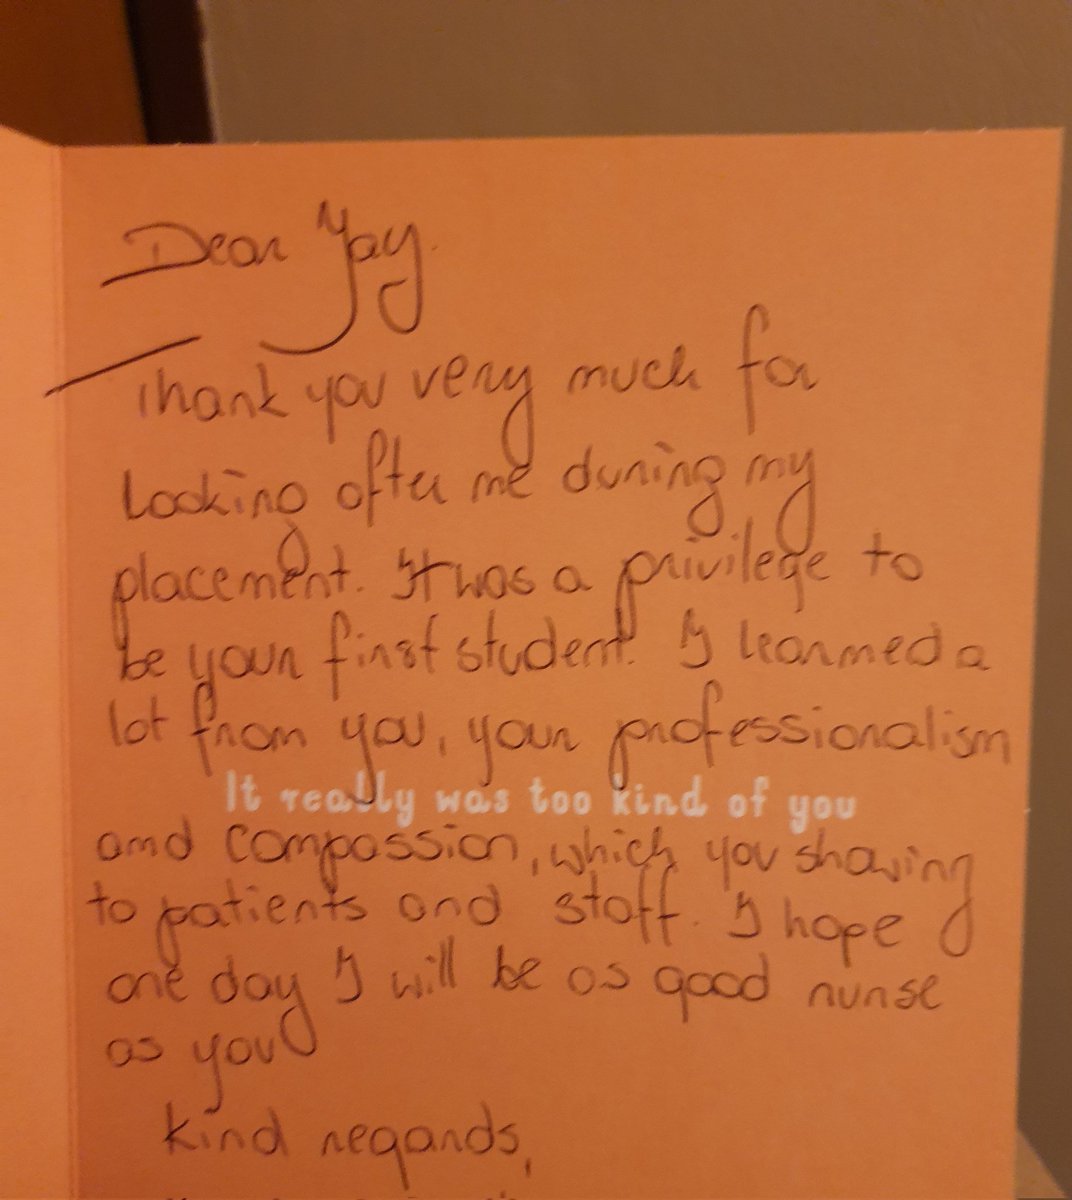 Dear Jay.
Thank you very much for
Looking after me during my
placement. It was a privilege to
be your first student. I learned a
lot from you, your professionalism
It really was too kind of you
and compassion, which you showing
to patients and staff. I hope
one day I will be as good nurse
as you
Kind regards,